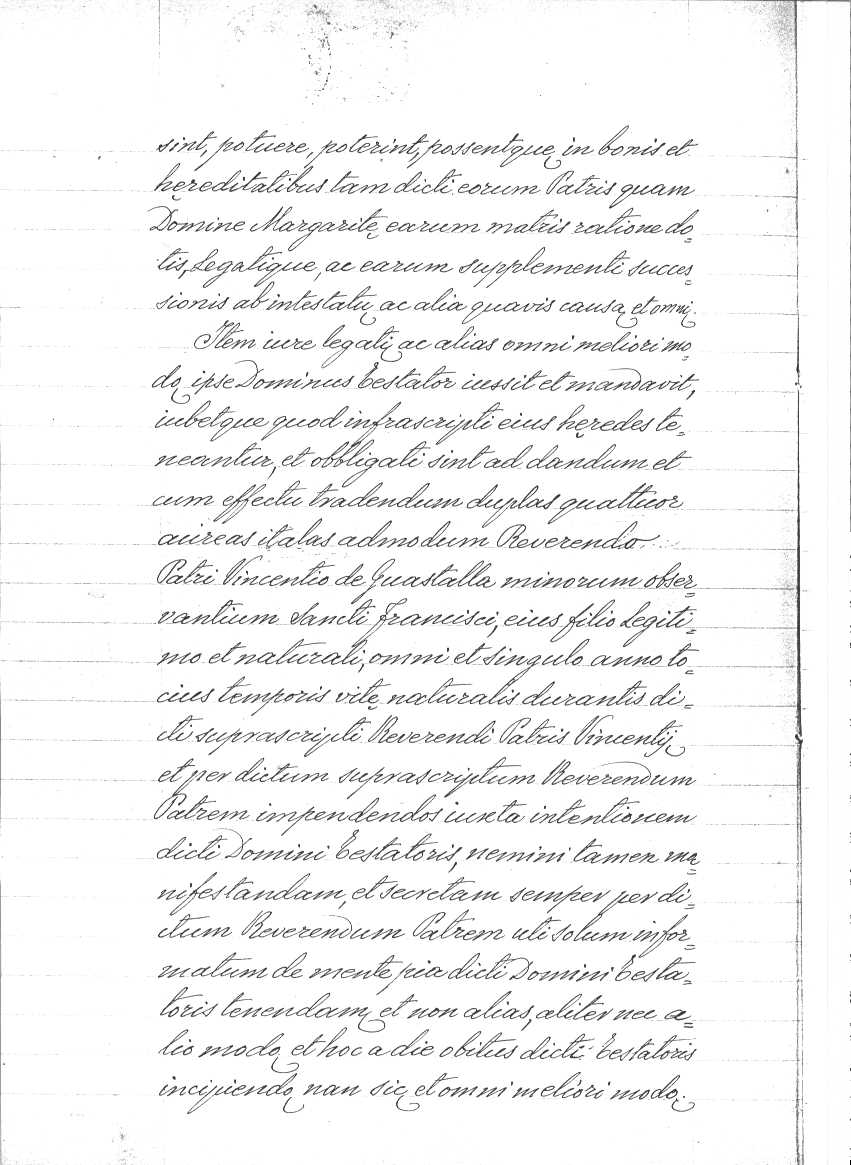 sint, potuere, poterint, possentque in bonis et
hęreditatibus tam dicti eorum Patris quam
Domine Margaritę earum matris ratione do=
tis, Legatique, ac earum supplementi succes=
sionis ab intestatu ac alia quavis causa et omni.
Item iure legati ac alias omni meliori mo=
do ipse Dominus Testator iussit et mandavit,
iubetque quod infrascripti eius hęredes te=
neantur, et obbligati sint ad dandum et
cum effectu tradendum duplas quattuor
aureas italas admodum Reverendo
Patri Vincentio de Guastalla minorum obser=
vantium Sancti Francisci, eius filio Legiti=
mo et naturali, omni et singulo anno to=
cius temporis vitę naturalis durantis di=
cti suprascripti Reverendi Patris Vincentij
et per dictum suprascriptum Reverendum
Patrem impendendos iuxta intentionem
dicti Domini Testatoris, nemini tamen ma=
nifestandam, et secretam semper per di=
ctum Reverendum Patrem uti solum infor=
matum de mente pia dicti Domini Testa=
toris tenendam et non alias, aliter nec a=
lio modo et hoc a die obitus dicti Testatoris
incipiendo nan sic et omni meliori modo.